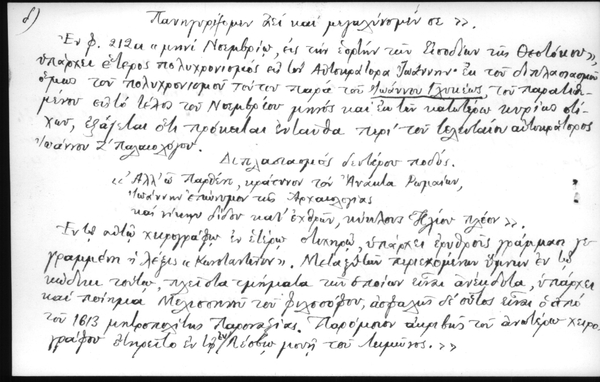 δ)
Πανηγυρίζομεν ἀεί καί μεγαλύνομέν σε >>.
Ἐν φ. 212α « μηνί Νοεμβρίῳ, εἰς τήν ἑορτήν τῶν Εἰσοδίων τῆς Θεοτόκου»,
ὑπάρχει ἕτερος πολυχρονισμός εἰς τόν Αὐτοκράτορα Ἰωάννην· Ἐκ τοῦ διπλασιασμοῦ
ὅμως τοῦ πολυχρονισμοῦ τούτου παρά τοῦ Ἰωάννου Γλυκέως, τοῦ παρατιθε-
μένου εἰς τό τέλος τοῦ Νοεμβρίου μηνός καί ἐκ τῶν κατωτέρω κυρίως στί-
χων, ἐξάγεται ὅτι πρόκειται ἐνταῦθα περί τοῦ τελευταίου αὐτοκράτορος
Ἰωάννου Ζ' Παλαιολόγου.
Διπλασιασμός δευτέρου ποδός.
« Ἀλλ' ὦ Παρθένε, κράτυνον τόν Ἄνακτα Ῥωμαίων,
Ἰωάννην ἐπώνυμον τῆς Ἀρχαιολογίας
καί νίκην δίδου κατ' ἐχθρῶν, κύκλους Ἡλίου πλέον ».
Ἐν τῷ αὐτῷ χειρογράφῳ ἐν ἑτέρῳ στιχηρῷ, ὑπάρχει ἐρυθροῖς γράμμασι γε-
γραμμένη ἡ λέξις « Κωνσταντῖνον». Μεταξύ τῶν περιεχομένων ὕμνων ἐν τῷ
κώδικι τούτῳ, πλεῖστα τμήματα τῶν ὁποίων εἶναι ἀνέκδοτα, ὑπάρχει
καί ποίημα Μελισσηνοῦ τοῦ φιλοσόφου, ἀσφαλῶς δέ οὗτος εἶναι ὁ ἀπό
τοῦ 1613 μητροπολίτης Παροναξίας. Παρόμοιον ἀκριβῶς τοῦ ἀνωτέρω χειρο-
γράφου ἐτηρεῖτο ἐν τῇ ἐν Λέσβῳ μονῇ τοῦ Λειμῶνος. >>